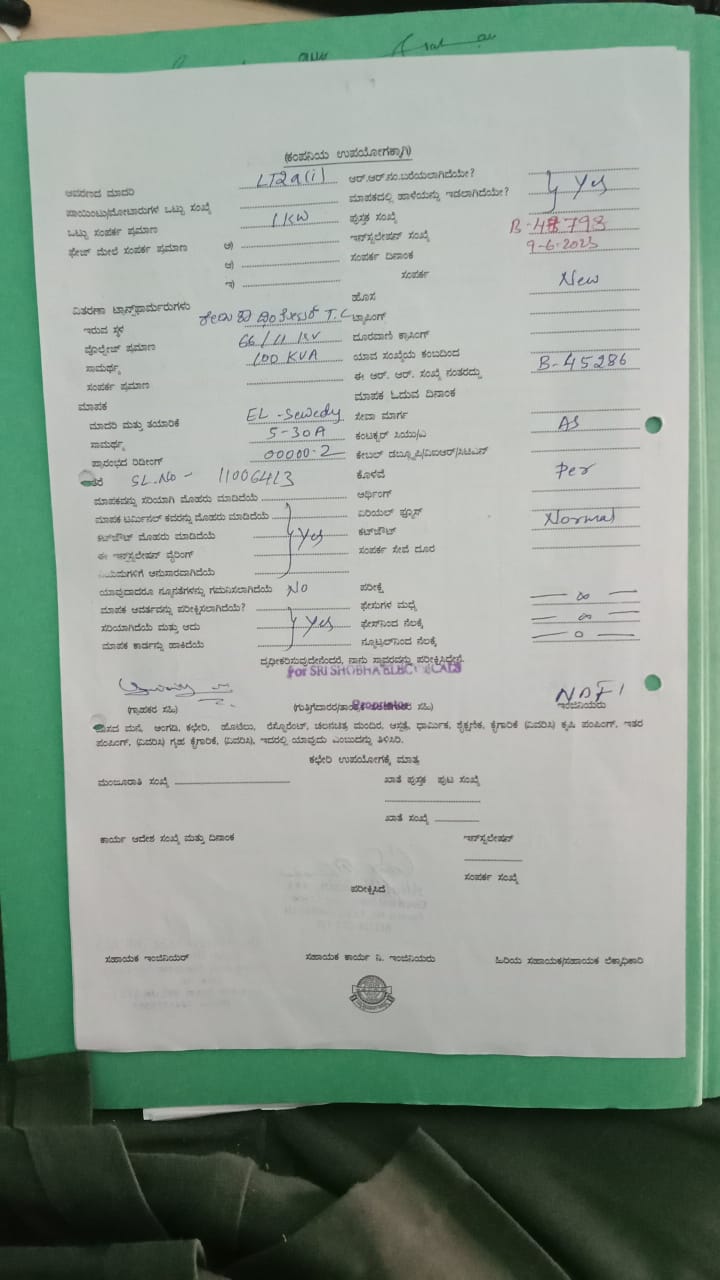 (ಕಂಪನಿಯ ಉಪಯೋಗಕ್ಕಾಗಿ)
ಆವರಣದ ಮಾದರಿ LT2a(i) ಆರ್.ಆರ್.ನಂ.ಬರೆಯಲಾಗಿದೆಯೇ?
ಪಾಯಿಂಟು/ಮೋಟಾರುಗಳ ಒಟ್ಟು ಸಂಖ್ಯೆ ಮಾಪಕದಲ್ಲಿ ಹಾಳೆಯನ್ನು ಇಡಲಾಗಿದೆಯೇ? Yes
ಒಟ್ಟು ಸಂಪರ್ಕ ಪ್ರಮಾಣ 1 KW ಪುಸ್ತಕ ಸಂಖ್ಯೆ
ಫೇಜ್ ಮೇಲೆ ಸಂಪರ್ಕ ಪ್ರಮಾಣ ಇನ್‌ಸ್ಟಲೇಷನ್ ಸಂಖ್ಯೆ
ಸಂಪರ್ಕ ದಿನಾಂಕ 9-6-2023
ಸಂಪರ್ಕ
ಹೊಸ New
ವಿತರಣಾ ಟ್ರಾನ್ಸ್‌ಫಾರ್ಮರುಗಳು
ಇರುವ ಸ್ಥಳ T.C ಟ್ಯಾಪಿಂಗ್
ವೊಲ್ಟೇಜ್ ಪ್ರಮಾಣ 66/11 KV ದೂರವಾಣಿ ಕ್ರಾಸಿಂಗ್
ಸಾಮರ್ಥ್ಯ 100 KVA ಯಾವ ಸಂಖ್ಯೆಯ ಕಂಬದಿಂದ
ಸಂಪರ್ಕ ಪ್ರಮಾಣ ಈ ಆರ್. ಆರ್. ಸಂಖ್ಯೆ ನಂತರದ್ದು B-45286
ಮಾಪಕ ಮಾಪಕ ಓದುವ ದಿನಾಂಕ
ಮಾದರಿ ಮತ್ತು ತಯಾರಿಕೆ EL-Sewedy ಸೇವಾ ಮಾರ್ಗ
ಸಾಮರ್ಥ್ಯ 5-30A ಕಂಟಕ್ಟರ್ ಸಿಯು/ಎ As
ಪ್ರಾರಂಭದ ರಿಡೀಂಗ್ 00000.2 ಕೇಬಲ್
SL.No - 11006413 ಕೊಳವೆ Per
ಮಾಪಕವನ್ನು ಸರಿಯಾಗಿ ಮೊಹರು ಮಾಡಿದೆಯೆ ಅರ್ಥಿಂಗ್
ಮಾಪಕ ಟರ್ಮಿನಲ್ ಕವರನ್ನು ಮೊಹರು ಮಾಡಿದೆಯೆ ಏರಿಯಲ್ ಫ್ಯೂಸ್
ಕಟ್‌ಔಟ್ ಮೊಹರು ಮಾಡಿದೆಯೆ Yes ಕಟ್‌ಔಟ್ Normal
ಈ ಇನ್‌ಸ್ಟಲೇಷನ್ ವೈರಿಂಗ್ ಸಂಪರ್ಕ ಸೇವೆ ದೂರ
ನಿಯಮಗಳಿಗೆ ಅನುಸಾರವಾಗಿದೆಯೆ
ಯಾವುದಾದರೂ ನ್ಯೂನತೆಗಳನ್ನು ಗಮನಿಸಲಾಗಿದೆಯೆ No ಪರೀಕ್ಷೆ
ಮಾಪಕ ಆವರ್ತವನ್ನು ಪರೀಕ್ಷಿಸಲಾಗಿದೆಯೆ? ಫೇಸುಗಳ ಮಧ್ಯೆ ∞
ಸರಿಯಾಗಿದೆಯೆ ಮತ್ತು ಅದು Yes ಫೇಸ್‌ನಿಂದ ನೆಲಕ್ಕೆ ∞
ಮಾಪಕ ಕಾರ್ಡನ್ನು ಹಾಕಿದೆಯೆ ನ್ಯೂಟ್ರಲ್‌ನಿಂದ ನೆಲಕ್ಕೆ 0
ದೃಢೀಕರಿಸುವುದೇನೆಂದರೆ, ನಾನು ಸ್ಥಾವರವನ್ನು ಪರೀಕ್ಷಿಸಿದ್ದೇನೆ.
For SRI SHOBHA ELECTRICALS
Proprietor
(ಗ್ರಾಹಕರ ಸಹಿ) ಸಹಿ) ಇಂಜಿನಿಯರು
ವಾಸದ ಮನೆ, ಅಂಗಡಿ, ಕಛೇರಿ, ಹೋಟೆಲು, ರೆಸ್ಟೋರೆಂಟ್, ಚಲನಚಿತ್ರ ಮಂದಿರ, ಆಸ್ಪತ್ರೆ, ಧಾರ್ಮಿಕ, ಶೈಕ್ಷಣಿಕ, ಕೈಗಾರಿಕೆ (ವಿವರಿಸಿ) ಕೃಷಿ ಪಂಪಿಂಗ್, ಇತರ
ಪಂಪಿಂಗ್, (ವಿವರಿಸಿ) ಗೃಹ ಕೈಗಾರಿಕೆ, (ವಿವರಿಸಿ), ಇದರಲ್ಲಿ ಯಾವುದು ಎಂಬುದನ್ನು ತಿಳಿಸಿರಿ.
ಕಛೇರಿ ಉಪಯೋಗಕ್ಕೆ ಮಾತ್ರ
ಮಂಜೂರಾತಿ ಸಂಖ್ಯೆ ಖಾತೆ ಪುಸ್ತಕ ಪುಟ ಸಂಖ್ಯೆ
ಖಾತೆ ಸಂಖ್ಯೆ
ಕಾರ್ಯ ಆದೇಶ ಸಂಖ್ಯೆ ಮತ್ತು ದಿನಾಂಕ ಇನ್‌ಸ್ಟಲೇಷನ್
ಸಂಪರ್ಕ ಸಂಖ್ಯೆ
ಪರೀಕ್ಷಿಸಿದೆ
ಸಹಾಯಕ ಇಂಜಿನಿಯರ್ ಸಹಾಯಕ ಕಾರ್ಯ ನಿ. ಇಂಜಿನಿಯರು ಹಿರಿಯ ಸಹಾಯಕ/ಸಹಾಯಕ ಲೆಕ್ಕಾಧಿಕಾರಿ